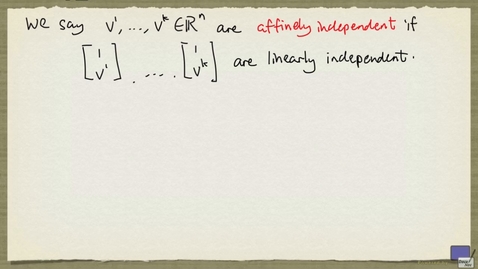 We say v¹, ..., vᵏ ∈ ℝⁿ are affinely independent if
[1 v¹], ..., [1 vᵏ] are linearly independent.